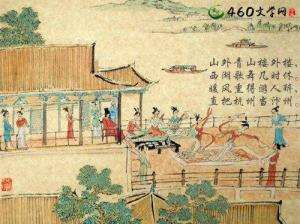 460文学网
山外青山楼外楼、
西湖歌舞几时休、
暖风熏得游人醉、
直把杭州当汴州、